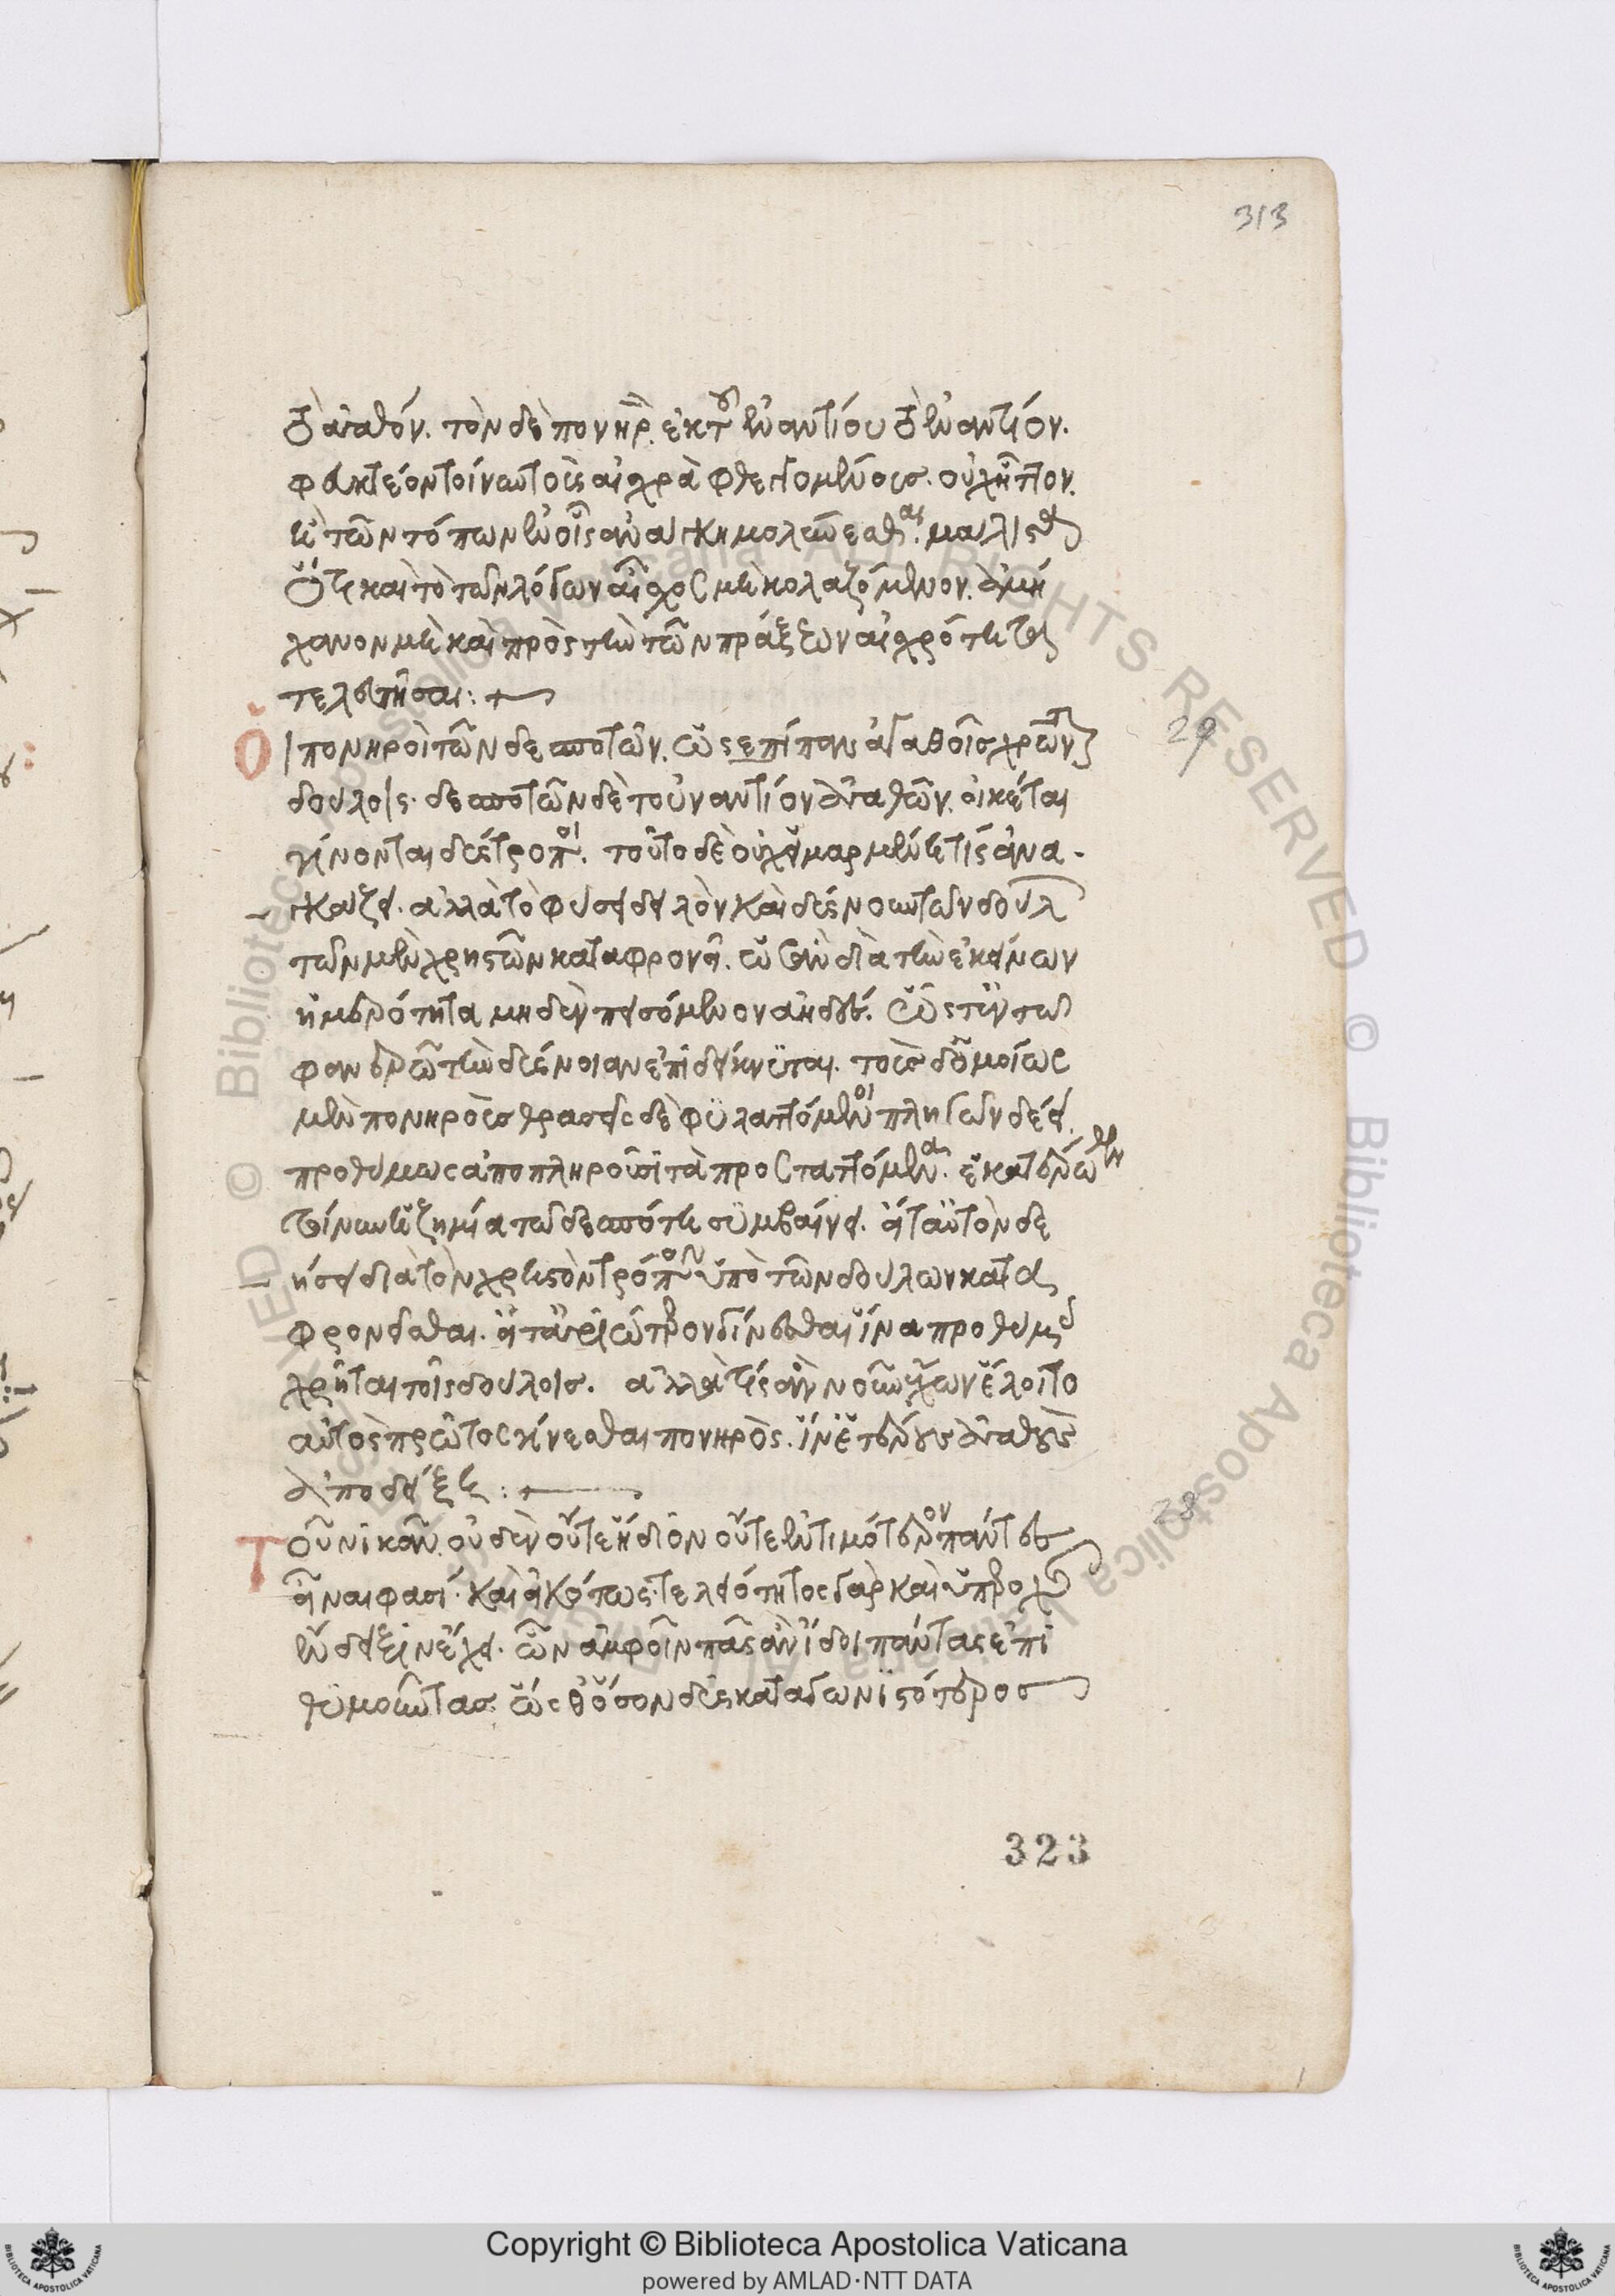 313
τὸ ἀγαθόν. τὸν δὲ πονηρὸν. ἐκ τοῦ ἐναντίου τὸ ἐναντίον.
φευκτέον τοίνυν τοὺς αἰσχρὰ φθεγγομένους. οὐχ ἧττον
ἢ τῶν τόπων ἐν οἷς ἀνάγκη μολύνεσθαι. μάλιστα
ὅτι καὶ τὸ τῶν λόγων αἶσχος μὴ κολαζόμενον. ἀμή
χανον μὴ καὶ πρὸς τὴν τῶν πράξεων αἰσχρότητα
τελευτῆσαι:
Οἱ πονηροὶ τῶν δεσποτῶν. ὡς ἐπίπαν ἀγαθοῖς χρῶνται
29
δούλοις. δεσποτῶν δὲ τοὐναντίον ἀγαθῶν. οἰκέται
γίνονται δύστροποι. τοῦτο δὲ οὐχ εἱμαρμένη τις ἀνα-
γκάζει. ἀλλὰ τὸ φύσει δειλὸν καὶ δύσνουν τῶν δούλων
τῶν μὲν χρηστῶν καταφρονεῖ. ὡς ἂν διὰ τὴν ἐκείνων
ἡμερότητα μηδὲν πεισόμενον ἀηδές. ὥστ' ἐν τῷ
φανερῷ τὴν δύσνοιαν ἐπιδείκνυται. τοὺς δ' ὁμοίως
μὲν πονηροὺς θρασεῖς δὲ φυλαττόμενοι πληγῶν δέει.
προθύμως ἀποπληροῦσι τὰ προσταττόμενα. ἑκατέρωθεν
τοίνυν ἡ ζημία τῷ δεσπότῃ συμβαίνει. ἢ ταὐτὸν δε
ήσει διὰ τὸν χρηστὸν τρόπον ὑπὸ τῶν δούλων κατα
φρονεῖσθαι. ἢ ἀγριώτερον γίνεσθαι ἵνα προθύμοις
χρῆται τοῖς δούλοις. ἀλλὰ τίς ἂν νοῦν ἔχων ἕλοιτο
αὐτὸς πρῶτος γίνεσθαι πονηρὸς. ἵν' ἑτέρους ἀγαθοὺς
ἀποδείξῃ:
Τοῦ νικᾶν οὐδὲν οὔτε ἥδιον οὔτε ἐντιμότερον πάντες
28
εἶναι φασί. καὶ εἰκότως. τελειότητος γὰρ καὶ ὑπεροχῆς
ἔνδειξιν ἔχει. ὧν ἀμφοῖν πᾶς ἂν ἴδοι πάντας ἐπι
θυμοῦντας. ὡς θ' ὅσον δυσκαταγωνιστότερος
323
Copyright © Biblioteca Apostolica Vaticana
powered by AMLAD·NTT DATA